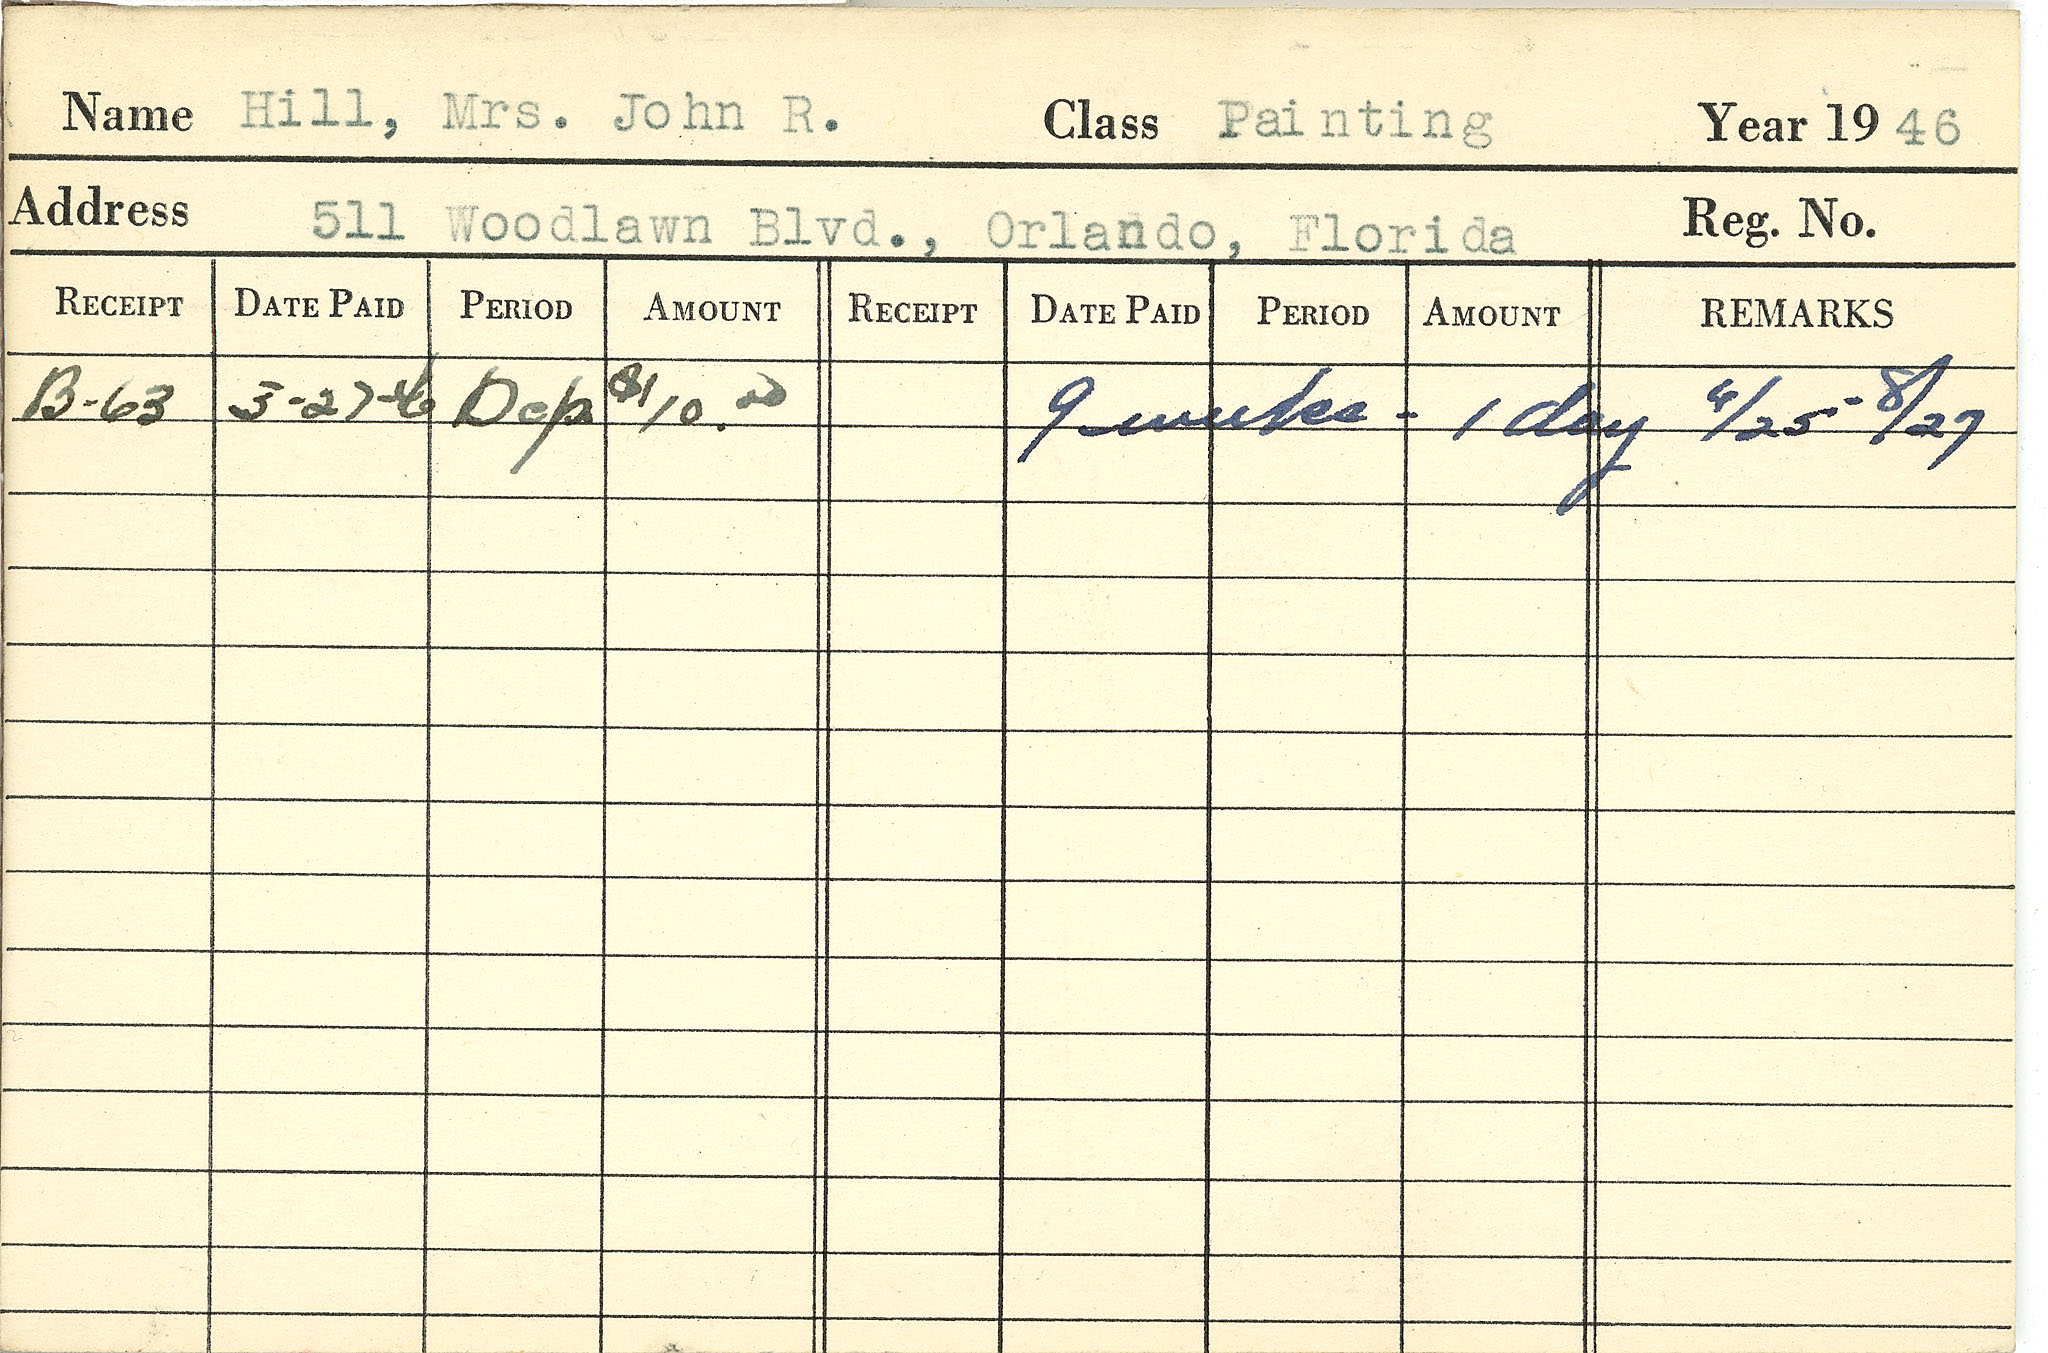 Name Hill, Mrs. John R. Class Painting Year 19 46
Address 511 Woodlawn Blvd., Orlando, Florida Reg. No.
RECEIPT DATE PAID PERIOD AMOUNT RECEIPT DATE PAID PERIOD AMOUNT REMARKS
B-63 3-27-46 Dep $10.00 9 weeks - 1 day 4/25 - 8/27